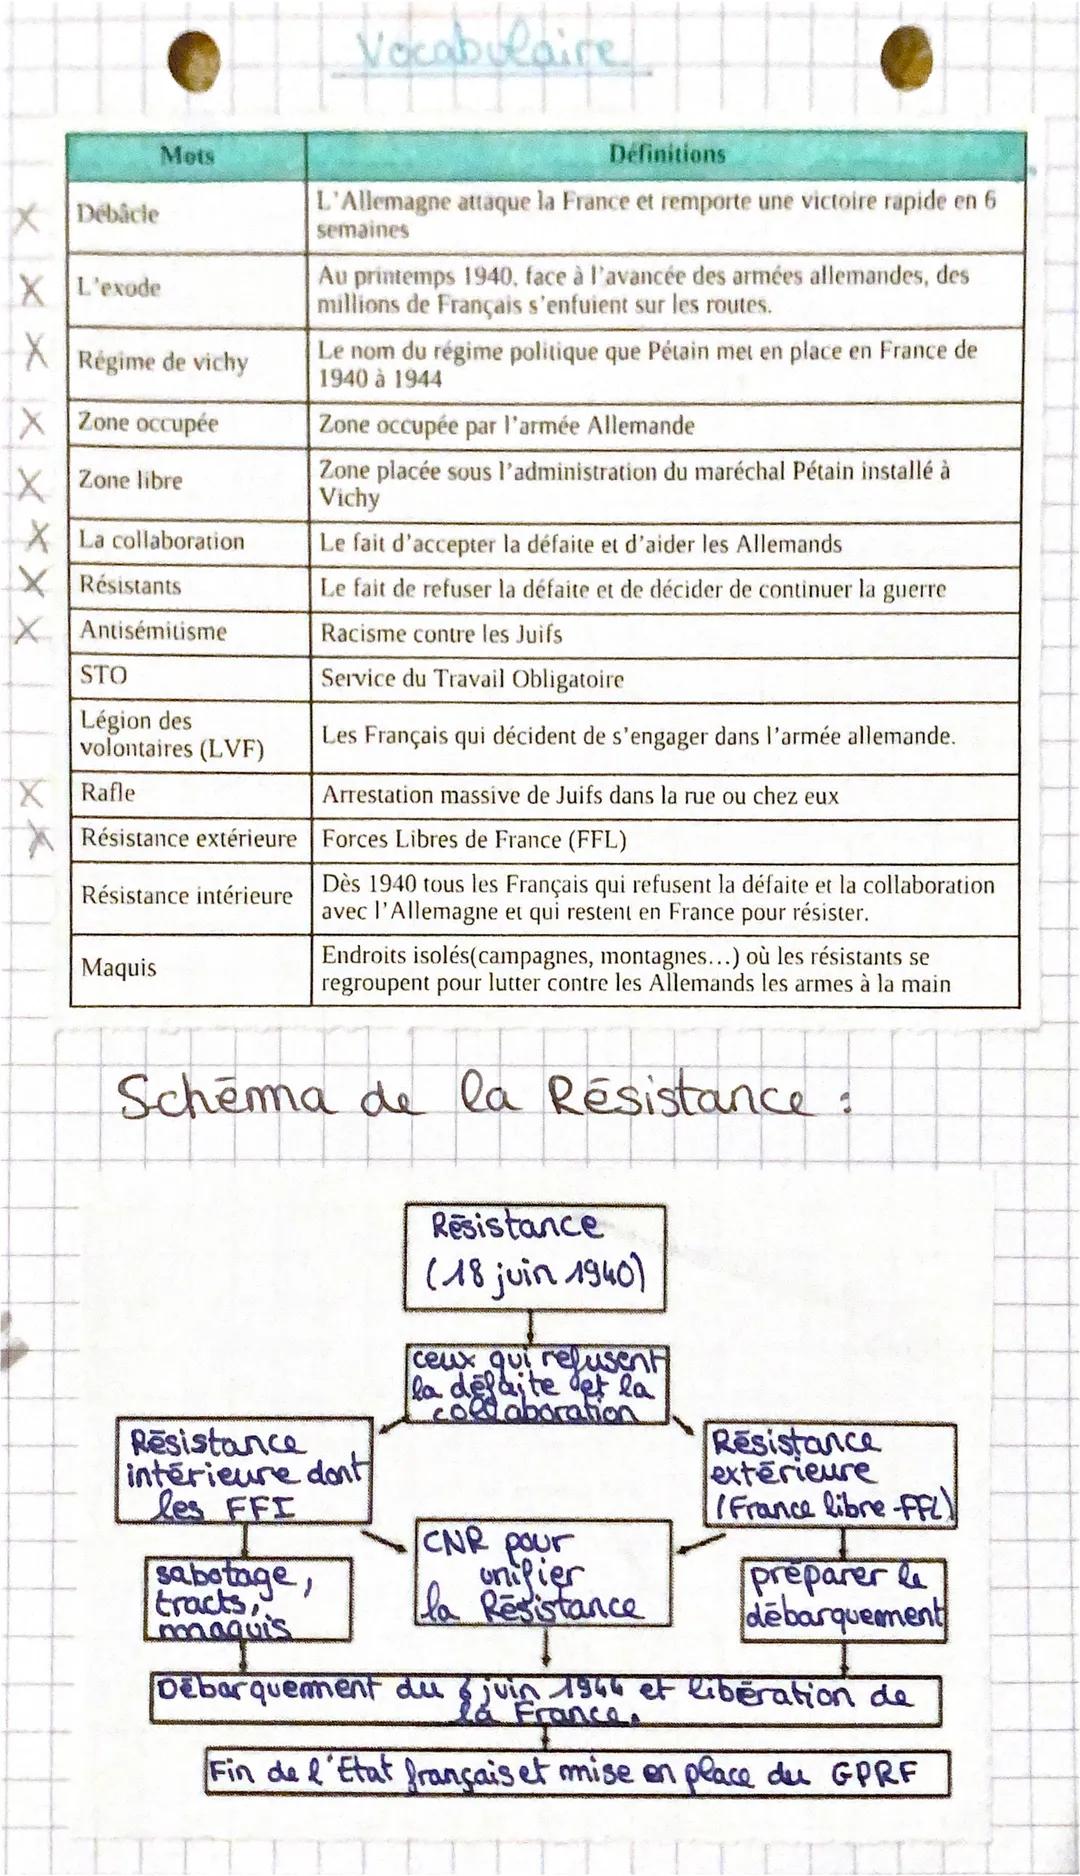 Vocabulaire
Mots
Définitions
Débâcle
L'Allemagne attaque la France et remporte une victoire rapide en 6
semaines
L'exode
Au printemps 1940, face à l'avancée des armées allemandes, des
millions de Français s'enfuient sur les routes.
Régime de vichy
Le nom du régime politique que Pétain met en place en France de
1940 à 1944
Zone occupée
Zone occupée par l'armée Allemande
Zone libre
Zone placée sous l'administration du maréchal Pétain installé à
Vichy
La collaboration
Le fait d'accepter la défaite et d'aider les Allemands
Résistants
Le fait de refuser la défaite et de décider de continuer la guerre
Antisémitisme
Racisme contre les Juifs
STO
Service du Travail Obligatoire
Légion des
volontaires (LVF)
Les Français qui décident de s'engager dans l'armée allemande.
Rafle
Arrestation massive de Juifs dans la rue ou chez eux
Résistance extérieure
Forces Libres de France (FFL)
Résistance intérieure
Dès 1940 tous les Français qui refusent la défaite et la collaboration
avec l'Allemagne et qui restent en France pour résister.
Maquis
Endroits isolés(campagnes, montagnes...) où les résistants se
regroupent pour lutter contre les Allemands les armes à la main
Schéma de la Résistance :
Résistance
(18 juin 1940)
ceux qui refusent
la défaite et la
collaboration
Résistance
intérieure dont
les FFI
Résistance
extérieure
(France libre -FFL)
CNR pour
unifier
la Résistance
sabotage,
tracts,
maquis
préparer le
débarquement
Débarquement du 6 juin 1944 et libération de
la France.
Fin de l'Etat français et mise en place du GPRF